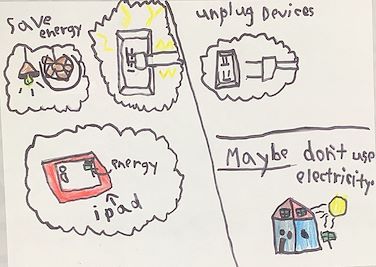 save
energy
unplug Devices
energy
ipad
Maybe don't use
electricity.